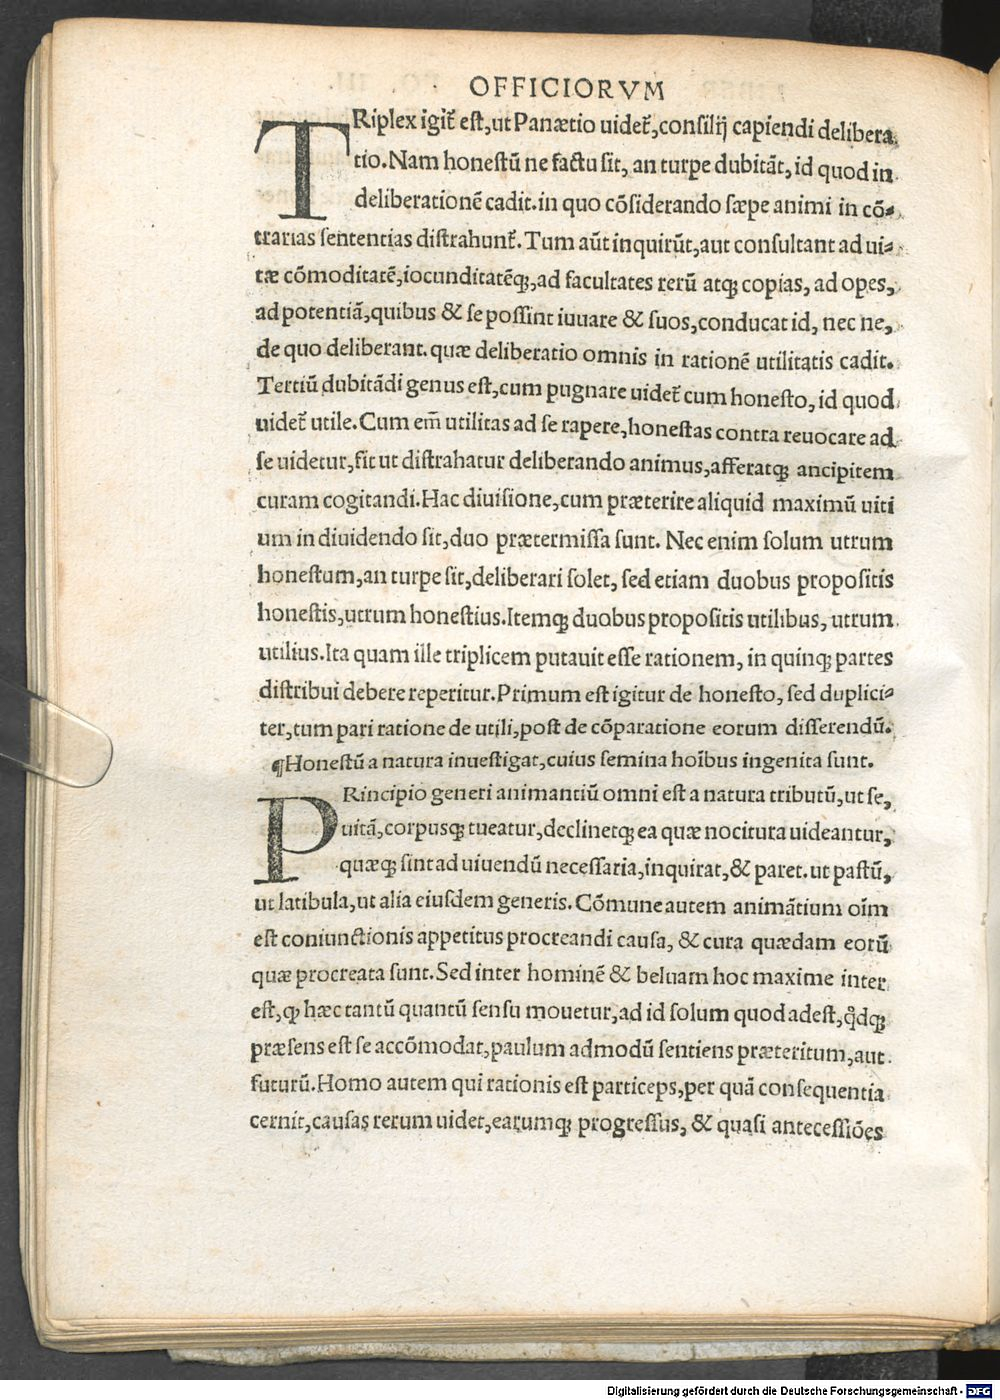 OFFICIORVM
TRiplex igit̃ est,ut Panætio uidet̃,consilij capiendi delibera
tio.Nam honestũ ne factu sit, an turpe dubitãt,id quod in
deliberationẽ cadit.in quo cõsiderando sæpe animi in cõ-
trarias sententias distrahunt̃.Tum aũt inquirũt,aut consultant ad ui-
tæ cõmoditatẽ,iocunditatẽq;,ad facultates rerũ atq; copias, ad opes,
ad potentiã,quibus & se possint iuuare & suos,conducat id, nec ne,
de quo deliberant.quæ deliberatio omnis in rationẽ utilitatis cadit.
Tertiũ dubitãdi genus est,cum pugnare uidet̃ cum honesto, id quod
uidet̃ utile.Cum em̃ utilitas ad se rapere,honestas contra reuocare ad
se uidetur,fit ut distrahatur deliberando animus,afferatq; ancipitem
curam cogitandi.Hac diuisione,cum præterire aliquid maximũ uiti
um in diuidendo sit,duo prætermissa sunt. Nec enim solum utrum
honestum,an turpe sit,deliberari solet, sed etiam duobus propositis
honestis,utrum honestius.Itemq; duobus propositis utilibus, utrum
utilius.Ita quam ille triplicem putauit esse rationem, in quinq; partes
distribui debere reperitur.Primum est igitur de honesto, sed duplici-
ter,tum pari ratione de utili,post de cõparatione eorum disserendũ.
¶Honestũ a natura inuestigat,cuius semina hoĩbus ingenita sunt.
PRincipio generi animantiũ omni est a natura tributũ,ut se,
uitã,corpusq; tueatur,declinetq; ea quæ nocitura uideantur,
quæq; sint ad uiuendũ necessaria,inquirat,& paret.ut pastũ,
ut latibula,ut alia eiusdem generis.Cõmune autem animãtium oĩm
est coniunctionis appetitus procreandi causa, & cura quædam eorũ
quæ procreata sunt.Sed inter hominẽ & beluam hoc maxime inter
est,ꝙ hæc tantũ quantũ sensu mouetur,ad id solum quod adest,q̃dq;
præsens est se accõmodat,paulum admodũ sentiens præteritum,aut
futurũ.Homo autem qui rationis est particeps,per quã consequentia
cernit,causas rerum uidet,earumq; progressus, & quasi antecessiões
Digitalisierung gefördert durch die Deutsche Forschungsgemeinschaft - DFG